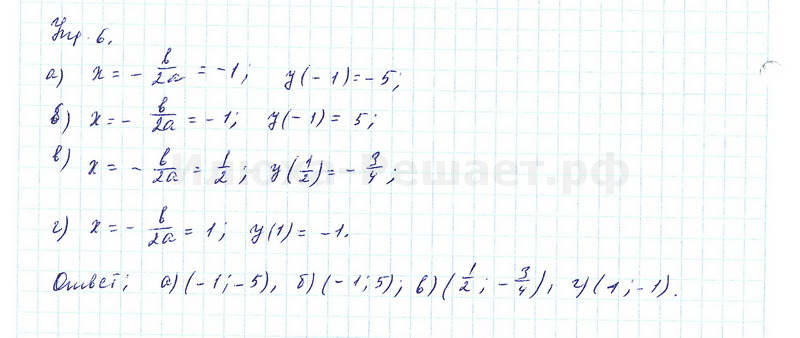 Упр. 6.
а) x = - b/2a = -1; y(-1) = -5;
б) x = - b/2a = -1; y(-1) = 5;
в) x = - b/2a = 1/2; y(1/2) = - 3/4;
г) x = - b/2a = 1; y(1) = -1.
Ответ; а) (-1; -5), б) (-1; 5); в) (1/2; - 3/4), г) (1; -1).